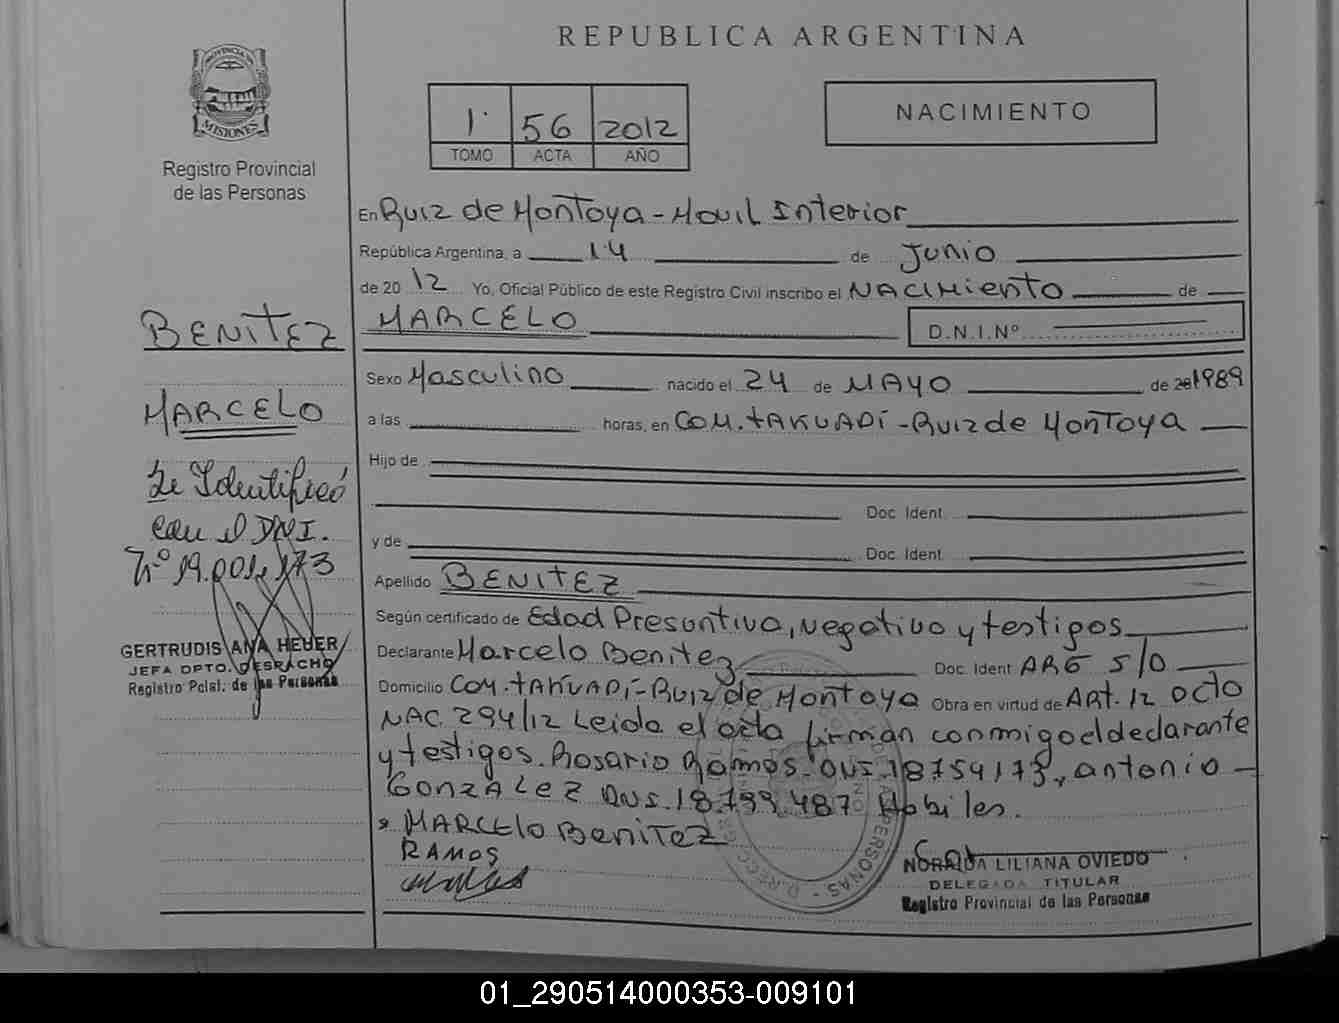 REPUBLICA ARGENTINA
PROVINCIA DE
MISIONES
Registro Provincial
de las Personas
1· 56 2012
TOMO ACTA AÑO
NACIMIENTO
En Ruiz de Montoya - Movil Interior
República Argentina, a 14 de Junio
de 20 12 Yo, Oficial Público de este Registro Civil inscribo el NACIMIENTO de
MARCELO D.N.I.Nº
Sexo Masculino nacido el 24 de MAYO de 20 1989
a las horas, en COM. TAKUAPÍ - Ruiz de Montoya
Hijo de
Doc. Ident.
y de Doc. Ident.
Apellido BENITEZ
Según certificado de Edad Presuntiva, Negativo y testigos
Declarante Marcelo Benitez Doc. Ident ARG S/D
Domicilio COM. TAKUAPÍ - Ruiz de Montoya Obra en virtud de ART. 12 Dcto
NAC. 294/12 Leida el acta firman conmigo el declarante
y testigos. Rosario Ramos DNI. 18754173, antonio
GONZALEZ DNI. 18.799.487 Habiles.
MARCELO Benitez
RAMOS
NORMA LILIANA OVIEDO
DELEGADA TITULAR
Registro Provincial de las Personas
BENITEZ
MARCELO
Se Identificó
con el DNI.
Nº 19.001.173
GERTRUDIS ANA HEUER
JEFA DPTO. DESPACHO
Registro Pcial. de las Personas
01_290514000353-009101